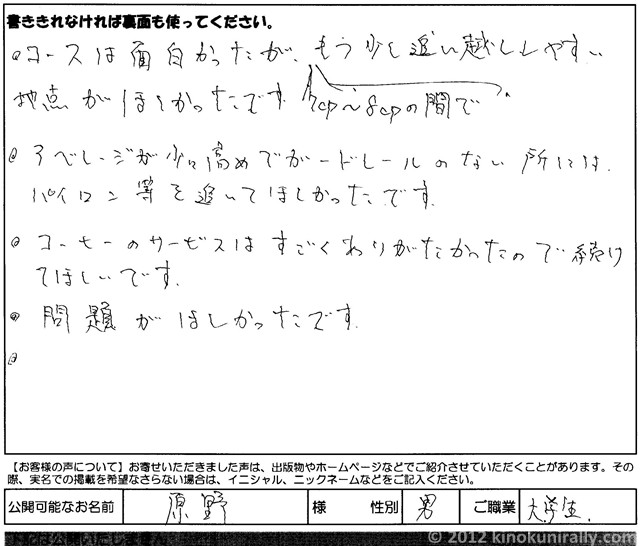 書ききれなければ裏面も使ってください。
コースは面白かったが、もう少し追い越ししやすい
地点がほしかったです 7cp〜8cpの間で
アベレージが少し高めでガードレールのない所には、
パイロン等を置いてほしかったです。
コーヒーのサービスはすごくありがたかったので続け
てほしいです。
問題がほしかったです。
【お客様の声について】お寄せいただきました声は、出版物やホームページなどでご紹介させていただくことがあります。その
際、実名での掲載を希望なさらない場合は、イニシャル、ニックネームなどをご記入ください。
公開可能なお名前 原野 様 性別 男 ご職業 大学生.
© 2012 kinokunirally.com